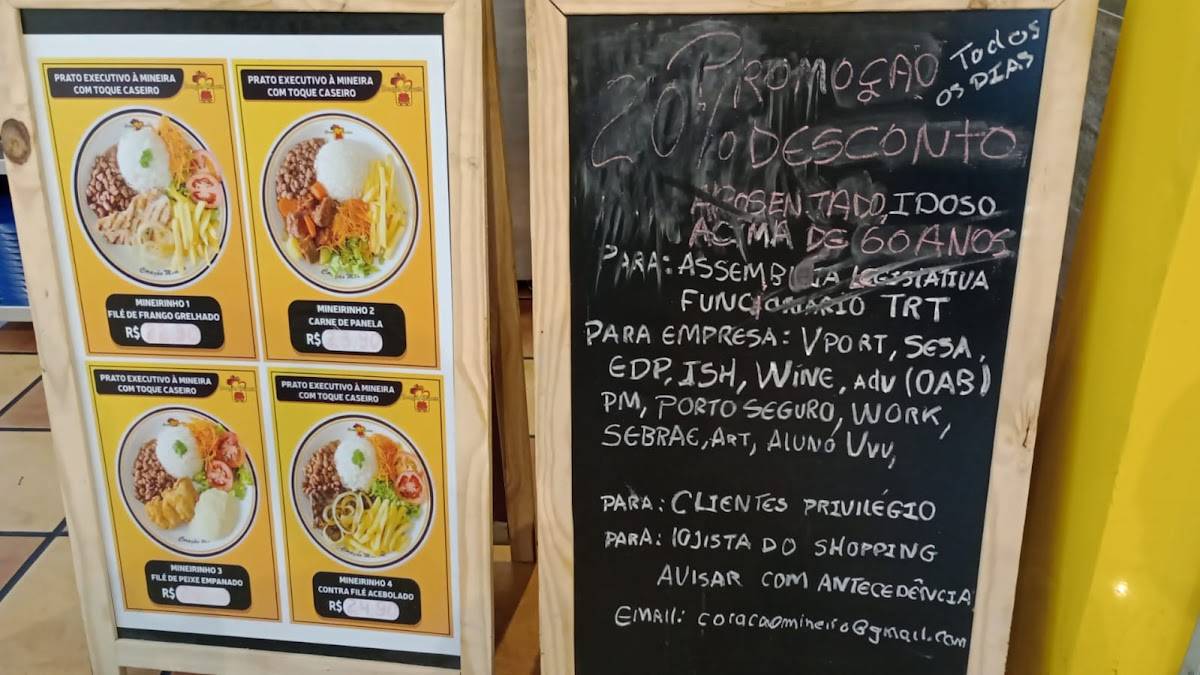 PRATO EXECUTIVO À MINEIRA
COM TOQUE CASEIRO
MINEIRINHO 1
FILÉ DE FRANGO GRELHADO
R$
PRATO EXECUTIVO À MINEIRA
COM TOQUE CASEIRO
MINEIRINHO 2
CARNE DE PANELA
R$
PRATO EXECUTIVO À MINEIRA
COM TOQUE CASEIRO
MINEIRINHO 3
FILÉ DE PEIXE EMPANADO
R$
PRATO EXECUTIVO À MINEIRA
COM TOQUE CASEIRO
MINEIRINHO 4
CONTRA FILÉ ACEBOLADO
R$ 24,90
PROMOÇÃO TODOS
OS DIAS
20% DESCONTO
APOSENTADO, IDOSO
ACIMA DE 60 ANOS
PARA: ASSEMBLEIA LEGISTATIVA
FUNCIONARIO TRT
PARA EMPRESA: VPORT, SESA,
EDP, ISH, WINE, ADV (OAB)
PM, PORTO SEGURO, WORK,
SEBRAE, ART, ALUNO UVV,
PARA: CLIENTES PRIVILÉGIO
PARA: LOJISTA DO SHOPPING
AVISAR COM ANTECEDÊNCIA
EMAIL: coracaomineiro@gmail.com